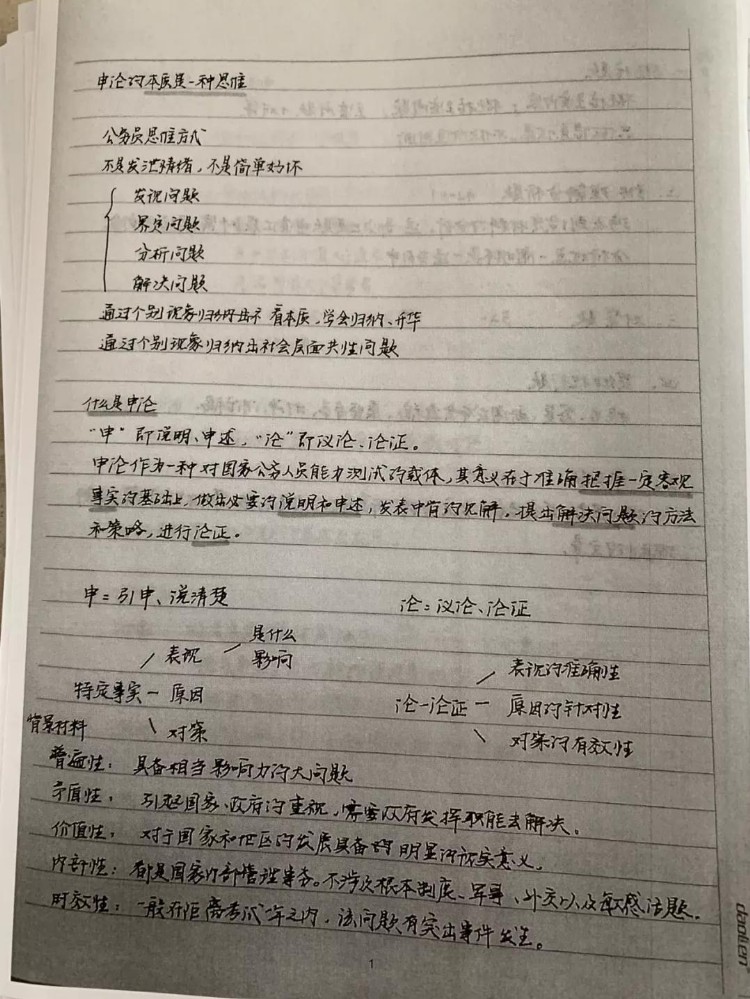 申论的本质是一种思维
公务员思维方式
不是发泄情绪，不是简单好坏
发现问题
界定问题
分析问题
解决问题
通过个别现象归纳出 看本质，学会归纳、升华
通过个别现象归纳出社会层面共性问题
什么是申论
“申”即说明、申述，“论”即议论、论证。
申论作为一种对国家公务人员能力测试的载体，其意义在于准确把握一定客观
事实的基础上，做出必要的说明和申述，发表中肯的见解，提出解决问题的方法
和策略，进行论证。
申=引申、说清楚 论=议论、论证
是什么
表现 影响 表现的准确性
特定事实 - 原因 论-论证 - 原因的针对性
背景材料 对策 对策的有效性
普遍性：具备相当影响力的大问题
矛盾性：引起国家、政府的重视，需要政府发挥职能去解决。
价值性：对于国家和地区的发展具备的明显的现实意义。
内部性：都是国家内部管理事务。不涉及根本制度、军事、外交以及敏感话题。
时效性：一般在距离考试一年之内，该问题有突出事件发生。
1